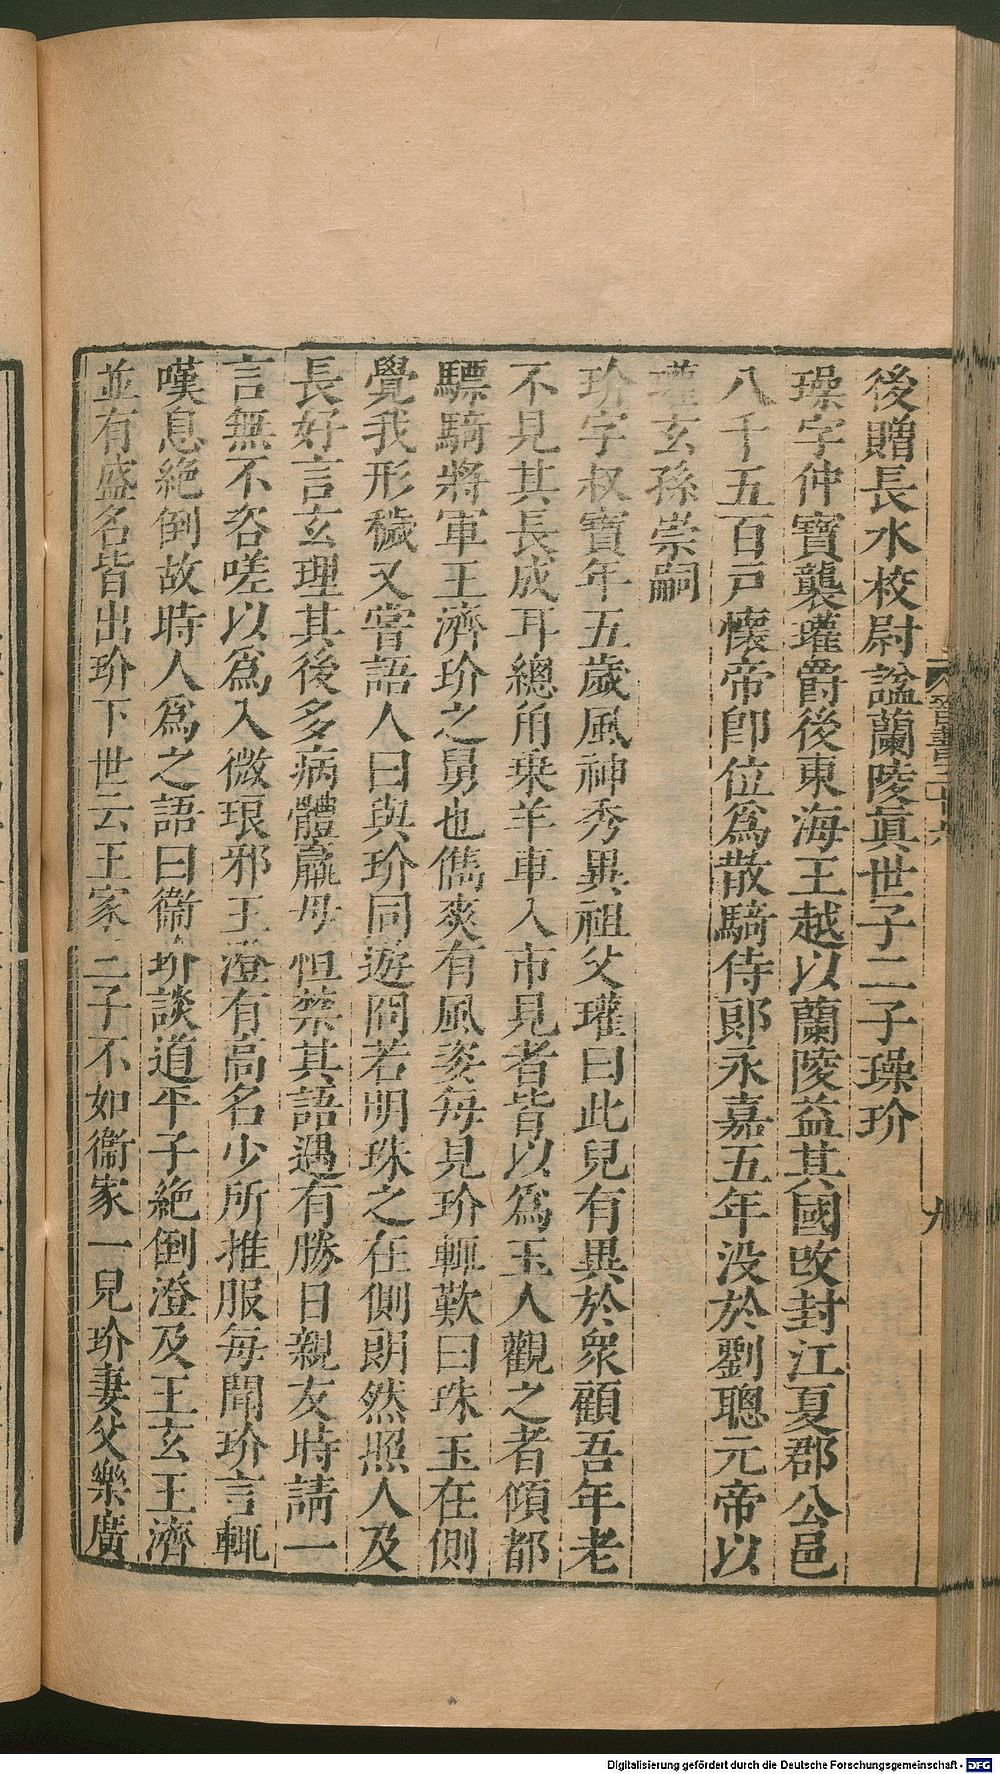 後贈長水校尉諡蘭陵眞世子二子璪玠
璪字仲寶襲瓘爵後東海王越以蘭陵益其國改封江夏郡公邑
八千五百戸懷帝卽位爲散騎侍郞永嘉五年没於劉聰元帝以
瓘玄孫崇嗣
玠字叔寶年五歲風神秀異祖父瓘曰此兒有異於衆顧吾年老
不見其長成耳總角乗羊車入市見者皆以爲玉人觀之者傾都
驃騎將軍王濟玠之舅也儁爽有風姿每見玠輒歎曰珠玉在側
覺我形穢又嘗語人曰與玠同遊冏若明珠之在側朗然照人及
長好言玄理其後多病體羸母恒禁其語遇有勝日親友時請一
言無不咨嗟以爲入微琅邪王澄有高名少所推服每聞玠言輒
嘆息絶倒故時人爲之語曰衞玠談道平子絶倒澄及王玄王濟
並有盛名皆出玠下世云王家三子不如衞家一兒玠妻父樂廣
晉書三十六
九
Digitalisierung gefördert durch die Deutsche Forschungsgemeinschaft - DFG